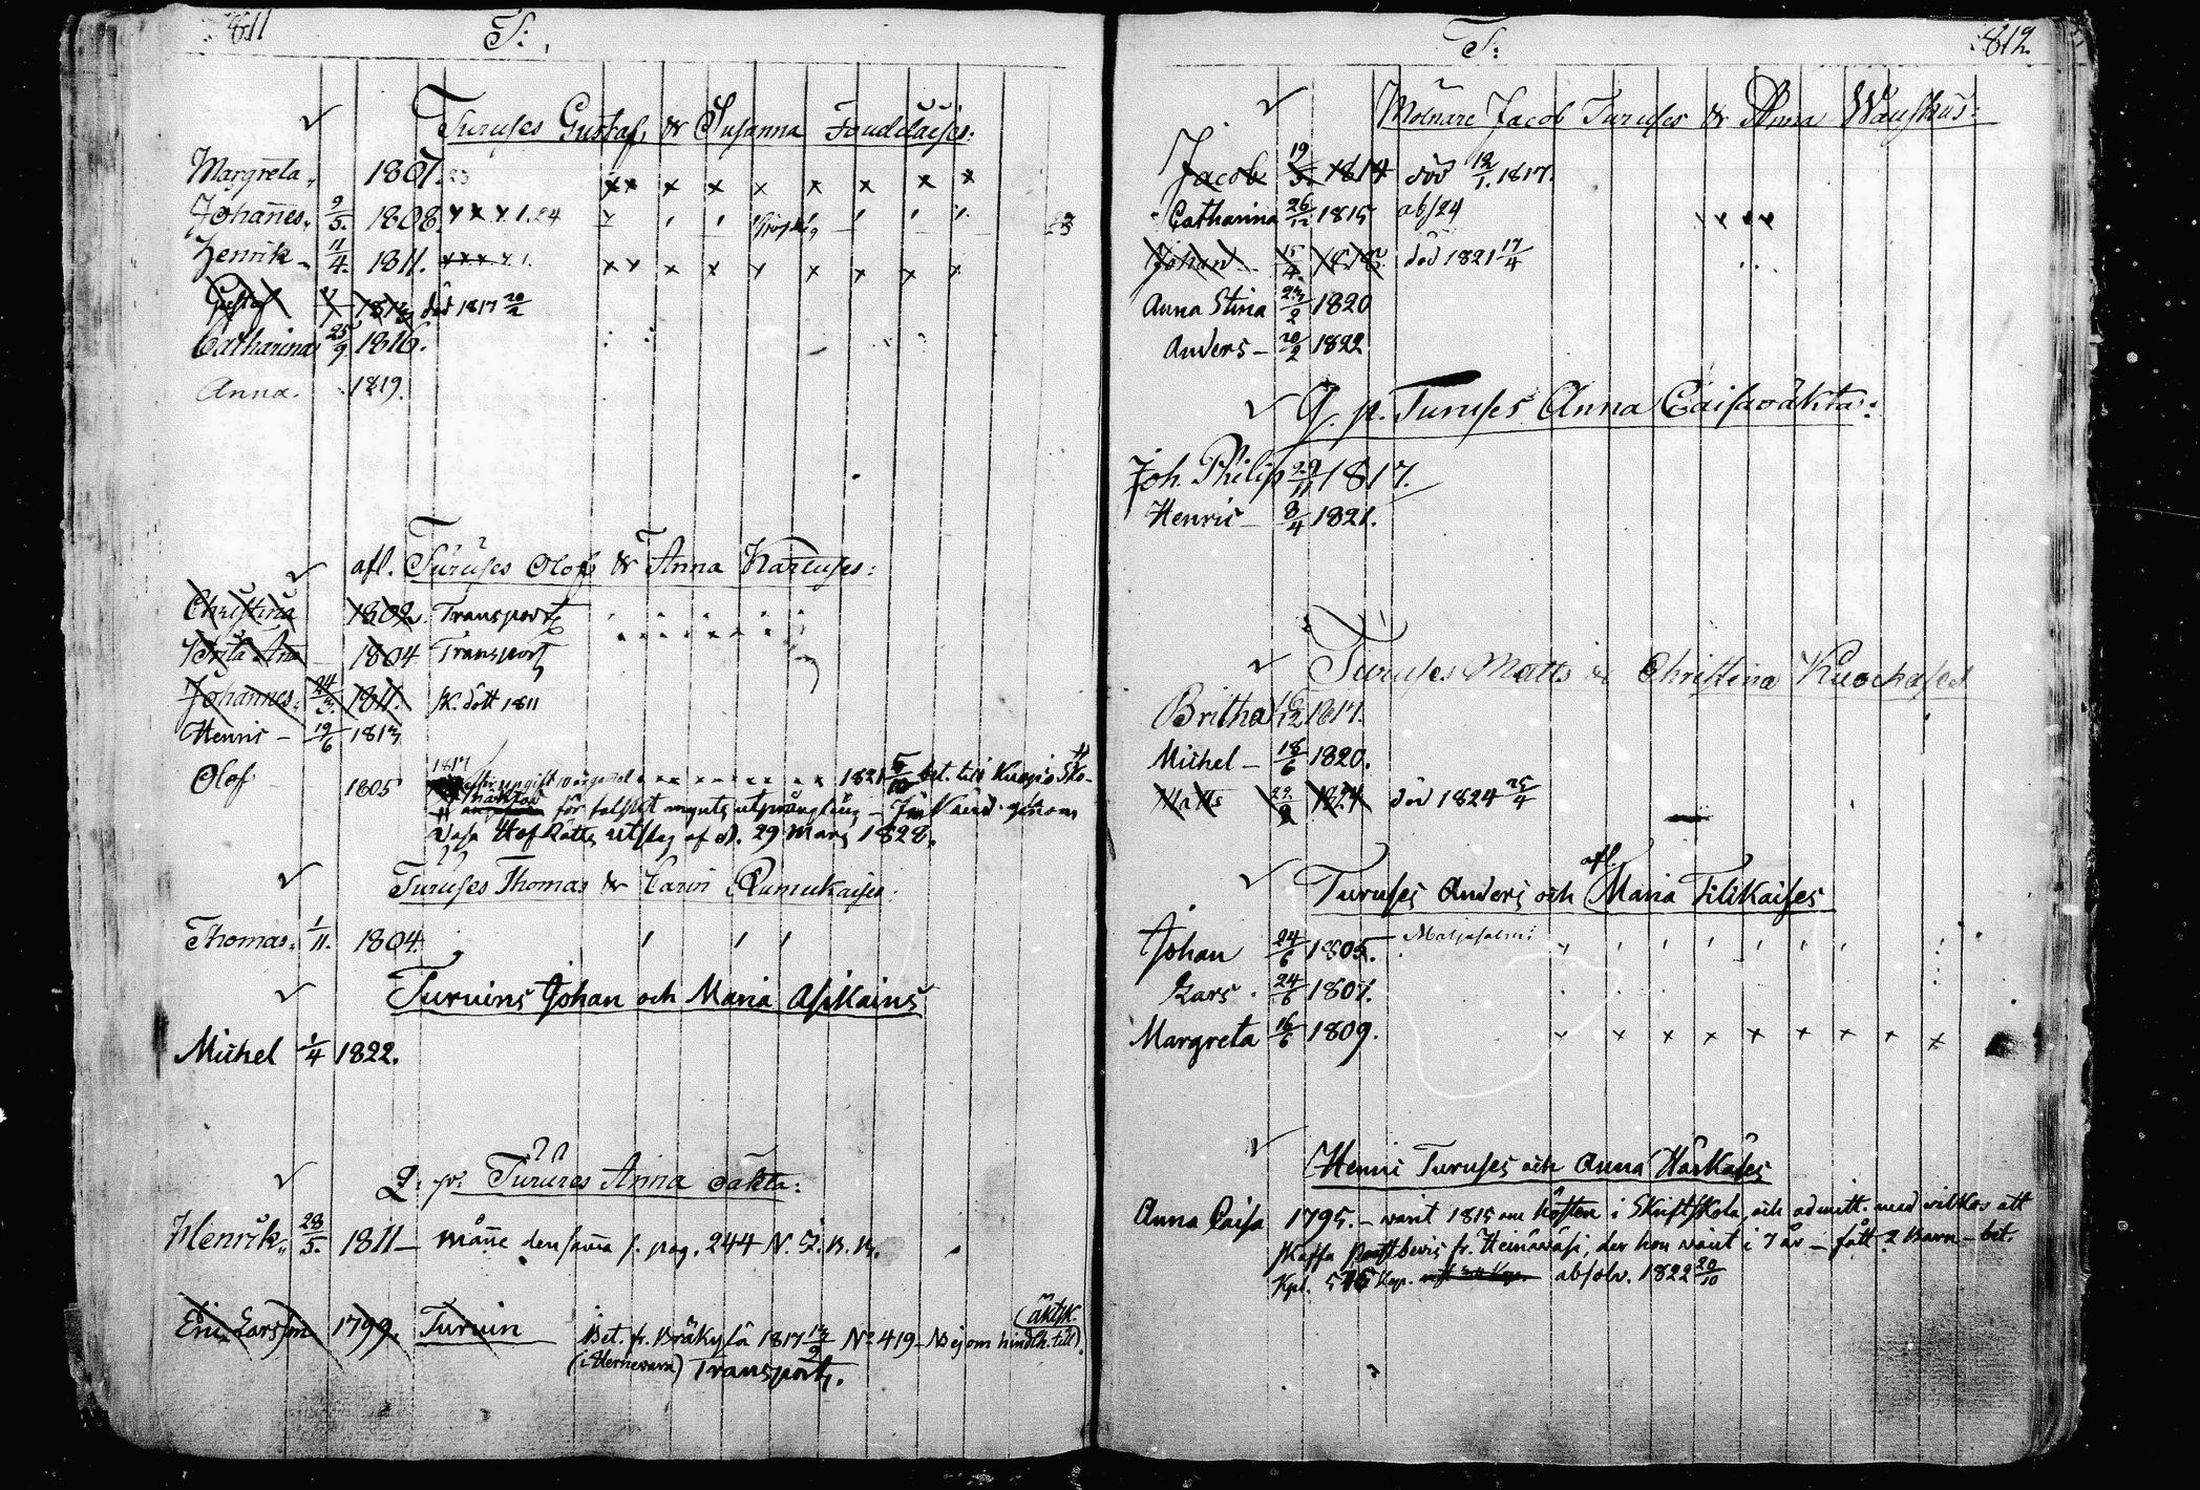 811
T:
Turuses Gustaf & Susanna
Margreta 1807. 23
Johannes 9/5. 1808. x x x 1. 24
Henrik 11/4. 1811. x x x x 1.
Gustaf död 1817 20/2
Catharina 25/9 1816.
Anna. 1819.
afl. Turuses Olof & Anna Karcuses:
Christina 1802. Transport
Brita Ana 1804 Transport
Johannes. 24/3. 1811. sk. dött 1811
Henric - 19/6 1813
1817
Olof 1805 1821 5/10 bet. till Kuopio
för falskt mynts utprångling - genom
Vasa Hof Rätts Utslag af d. 29 Mars 1828.
Turuses Thomas & Carin
Thomas 1/11. 1804.
Turuins Johan och Maria Asikains
Michel 1/4 1822.
Q. p. Turuses Anna oäkta:
Henrik 28/5. 1811 - månne densamma s. pag. 244 N.
(äktsk.
Eric Larsson 1799. Turuin Bet. fr. Bräkylä 1817 13/9 No 419 - ej om hindr. till).
Transport.
812.
T:
Molnare Jacob Turuses & Anna Wauhkus:
Jacob 19/3. 1814 död 12/1. 1817.
Catharina 26/12 1815 abs 24
Johan 15/4. 1818. död 1821 17/4
Anna Stina 23/2 1820
Anders - 20/2 1822
Q. p. Turuses Anna Caisa oäkta:
Joh. Philip 29/11 1817.
Henric - 8/4 1821.
Turuses Matts & Christina Kuochases
Britha 16/12 1817.
Michel - 18/6 1820.
Matts 22/2 1824 död 1824 25/4
afl.
Turuses Anders och Maria Tilikaises
Johan 24/6 1805.
Lars. 24/6 1807.
Margreta 16/6 1809.
Henric Turuses och Anna Härkäses
Anna Caisa 1795. - varit 1815 om hösten i Skriftskola, och admitt. med vilkor att
skaffa bevis fr. Heinäväsi, der hon varit i 7 år - fått 2 barn - bet.
absolv. 1822 20/10